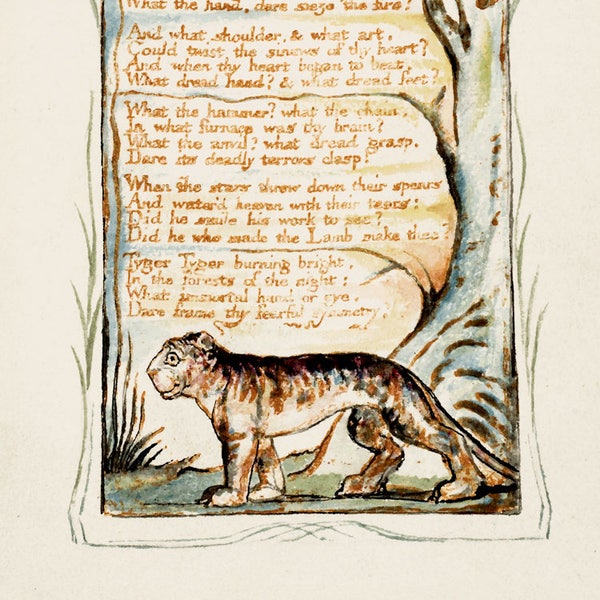 What the hand, dare sieze the fire?
And what shoulder, & what art,
Could twist the sinews of thy heart?
And when thy heart began to beat,
What dread hand? & what dread feet?
What the hammer? what the chain,
In what furnace was thy brain?
What the anvil? what dread grasp,
Dare its deadly terrors clasp!
When the stars threw down their spears
And water'd heaven with their tears:
Did he smile his work to see?
Did he who made the Lamb make thee?
Tyger Tyger burning bright,
In the forests of the night:
What immortal hand or eye,
Dare frame thy fearful symmetry.